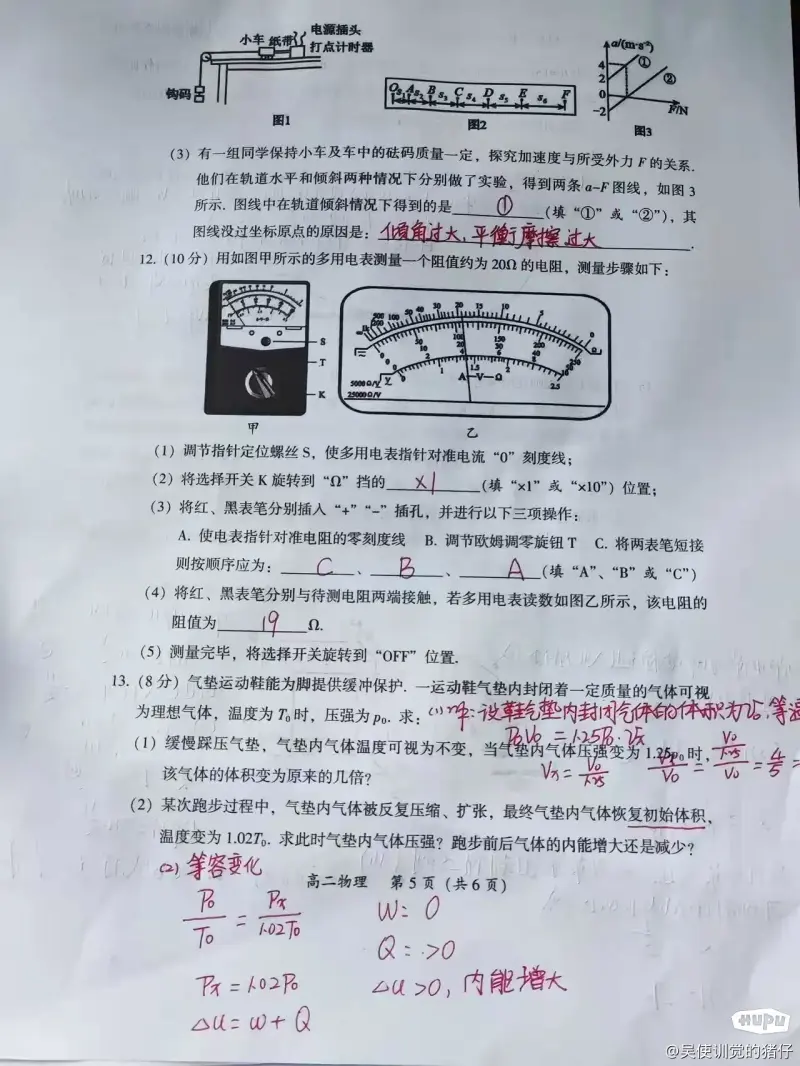 小车 纸带 电源插头
打点计时器
钩码
图1
O A B C D E F
s₁ s₂ s₃ s₄ s₅ s₆
图2
a/(m·s⁻²)
4
2
0
-2
①
②
F/N
图3
(3) 有一组同学保持小车及车中的砝码质量一定，探究加速度与所受外力 F 的关系.
他们在轨道水平和倾斜两种情况下分别做了实验，得到两条 a-F 图线，如图 3
所示. 图线中在轨道倾斜情况下得到的是 ① (填“①”或“②”)，其
图线没过坐标原点的原因是：倾角过大，平衡摩擦过大.
12. (10 分) 用如图甲所示的多用电表测量一个阻值约为 20Ω 的电阻，测量步骤如下：
S
T
K
甲
500 100 50 40 30 20 15 10 5 0 Ω
0 50 100 150 200 250
0 10 20 30 40 50
0 2 4 6 8 10
A—V—Ω
0 1 1.5 2 2.5
5000Ω/V
25000Ω/V
乙
(1) 调节指针定位螺丝 S，使多用电表指针对准电流“0”刻度线；
(2) 将选择开关 K 旋转到“Ω”挡的 ×1 (填“×1”或“×10”) 位置；
(3) 将红、黑表笔分别插入“+”“-”插孔，并进行以下三项操作：
A. 使电表指针对准电阻的零刻度线 B. 调节欧姆调零旋钮 T C. 将两表笔短接
则按顺序应为： C 、 B 、 A (填“A”、“B”或“C”)
(4) 将红、黑表笔分别与待测电阻两端接触，若多用电表读数如图乙所示，该电阻的
阻值为 19 Ω.
(5) 测量完毕，将选择开关旋转到“OFF”位置.
13. (8 分) 气垫运动鞋能为脚提供缓冲保护. 一运动鞋气垫内封闭着一定质量的气体可视
为理想气体，温度为 T₀ 时，压强为 p₀. 求：(1)解:设鞋气垫内封闭气体的体积为V₀,等温
P₀V₀ = 1.25P₀·Vx
(1) 缓慢踩压气垫，气垫内气体温度可视为不变，当气垫内气体压强变为 1.25p₀ 时，
该气体的体积变为原来的几倍？
Vx = V₀/1.25 Vx/V₀ = (V₀/1.25)/V₀ = 4/5 =
(2) 某次跑步过程中，气垫内气体被反复压缩、扩张，最终气垫内气体恢复初始体积，
温度变为 1.02T₀. 求此时气垫内气体压强？跑步前后气体的内能增大还是减少？
(2) 等容变化
高二物理 第 5 页（共 6 页）
P₀/T₀ = Px/1.02T₀
Px = 1.02P₀
ΔU = W + Q
W = 0
Q = >0
ΔU >0, 内能增大
HUPU
@吴使训觉的猪仔